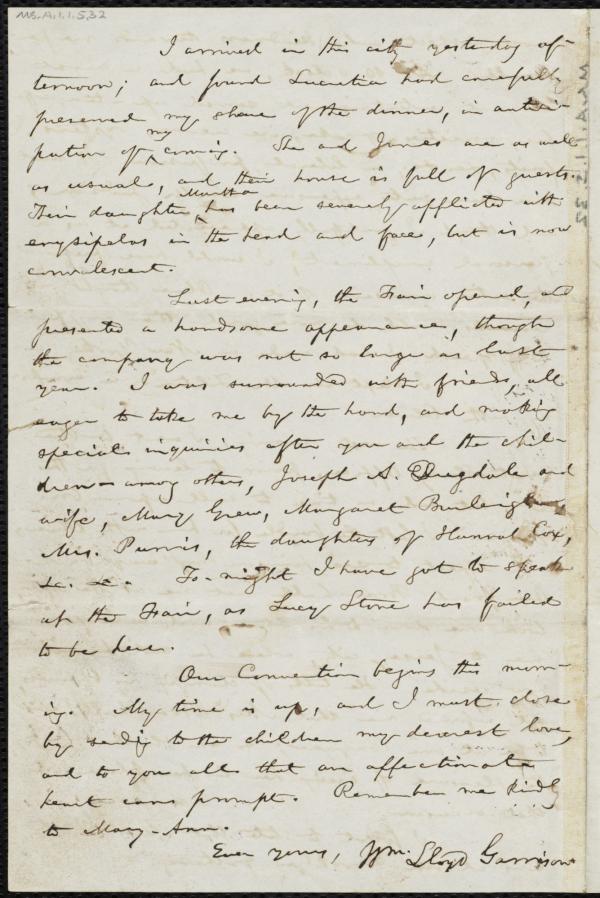 MS.A.1.1.5,32
I arrived in this city yesterday af-
ternoon; and found Lucretia had carefully
preserved my share of the dinner, in antici-
pation of my coming. She and James are as well
as usual, and their house is full of guests.
Their daughter Martha has been severely afflicted with
erysipelas in the head and face, but is now
convalescent.
Last evening, the Fair opened, and
presented a handsome appearance, though
the company was not so large as last
year. I was surrounded with friends, all
eager to take me by the hand, and making
special inquiries after you and the chil-
dren—among others, Joseph A. Dugdale and
wife, Mary Grew, Margaret Burleigh,
Mrs. Purvis, the daughters of Hannah Cox,
&c. &c. To-night I have got to speak
at the Fair, as Lucy Stone has failed
to be here.
Our Convention begins this morn-
ing. My time is up, and I must close
by sending to the children my dearest love,
and to you all that an affectionate
heart can prompt. Remember me kindly
to Mary-Ann.
Ever yours, Wm. Lloyd Garrison
MS.A.1.1.5.32